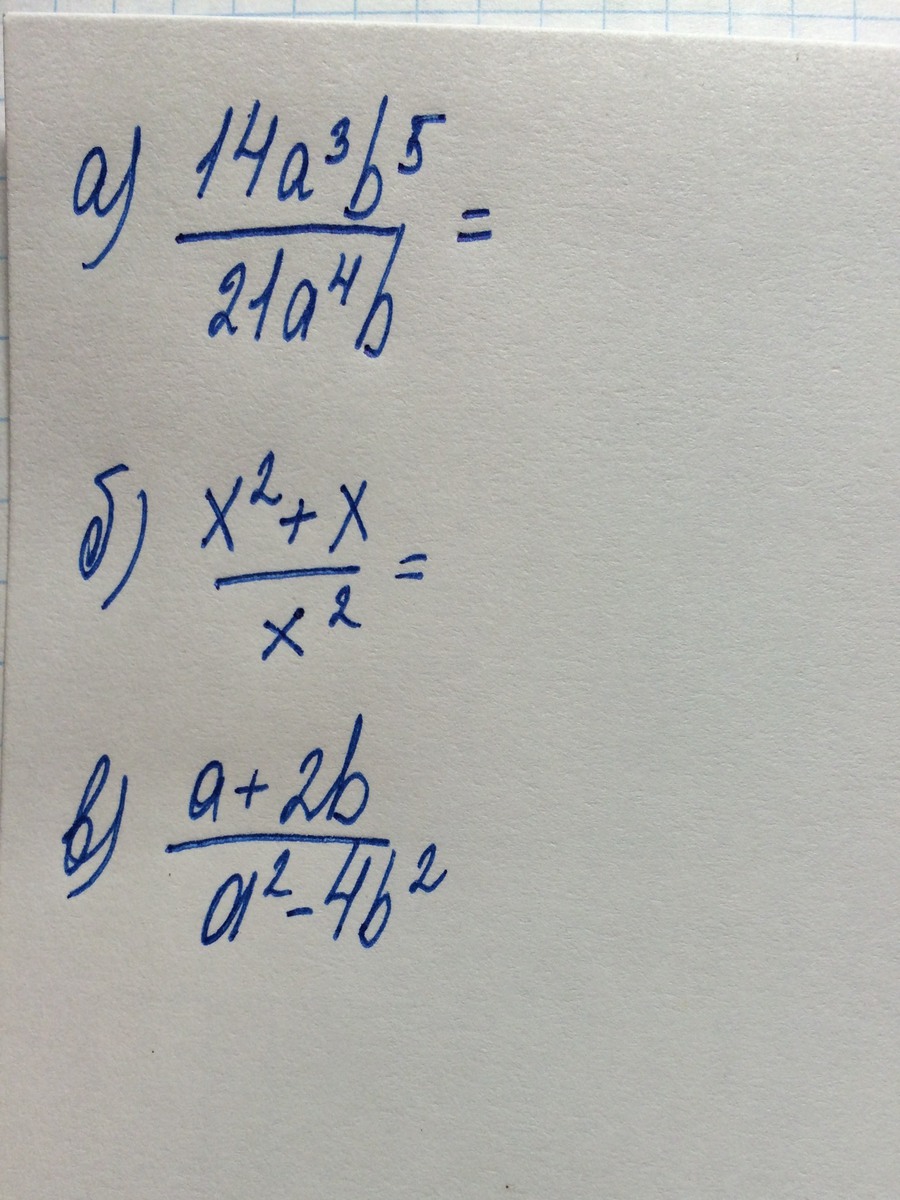 а) 14a³b⁵
=
21a⁴b
б) x² + x
=
x²
в) a + 2b
a² - 4b²